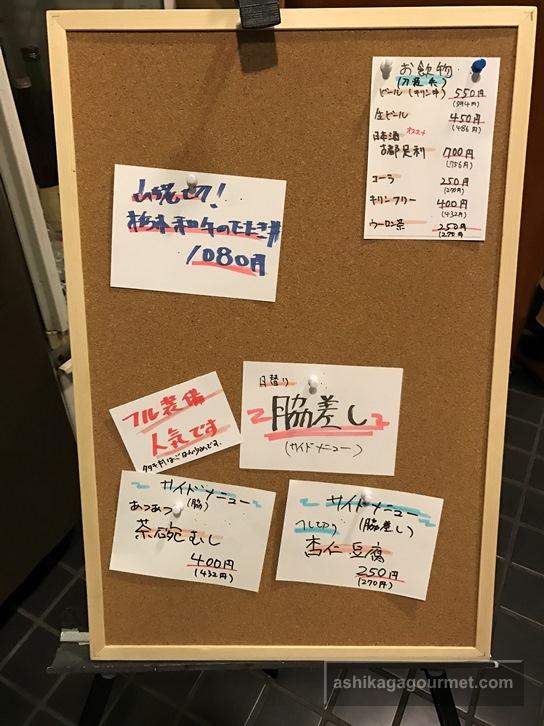 お飲物
ビール(キリン中) 550円
(594円)
生ビール 450円
(486円)
日本酒 オススメ
古都足利 700円
(756円)
コーラ 250円
(270円)
キリンフリー 400円
(432円)
ウーロン茶 250円
(270円
山姥切!
栃木和牛のたたき丼
1080円
フル装備
人気です
月替り
脇差し
(サイドメニュー)
サイドメニュー
(脇)
あつあつ
茶碗むし
400円
(432円)
サイドメニュー
(脇差し)
杏仁豆腐
250円
(270円)
ashikagagourmet.com